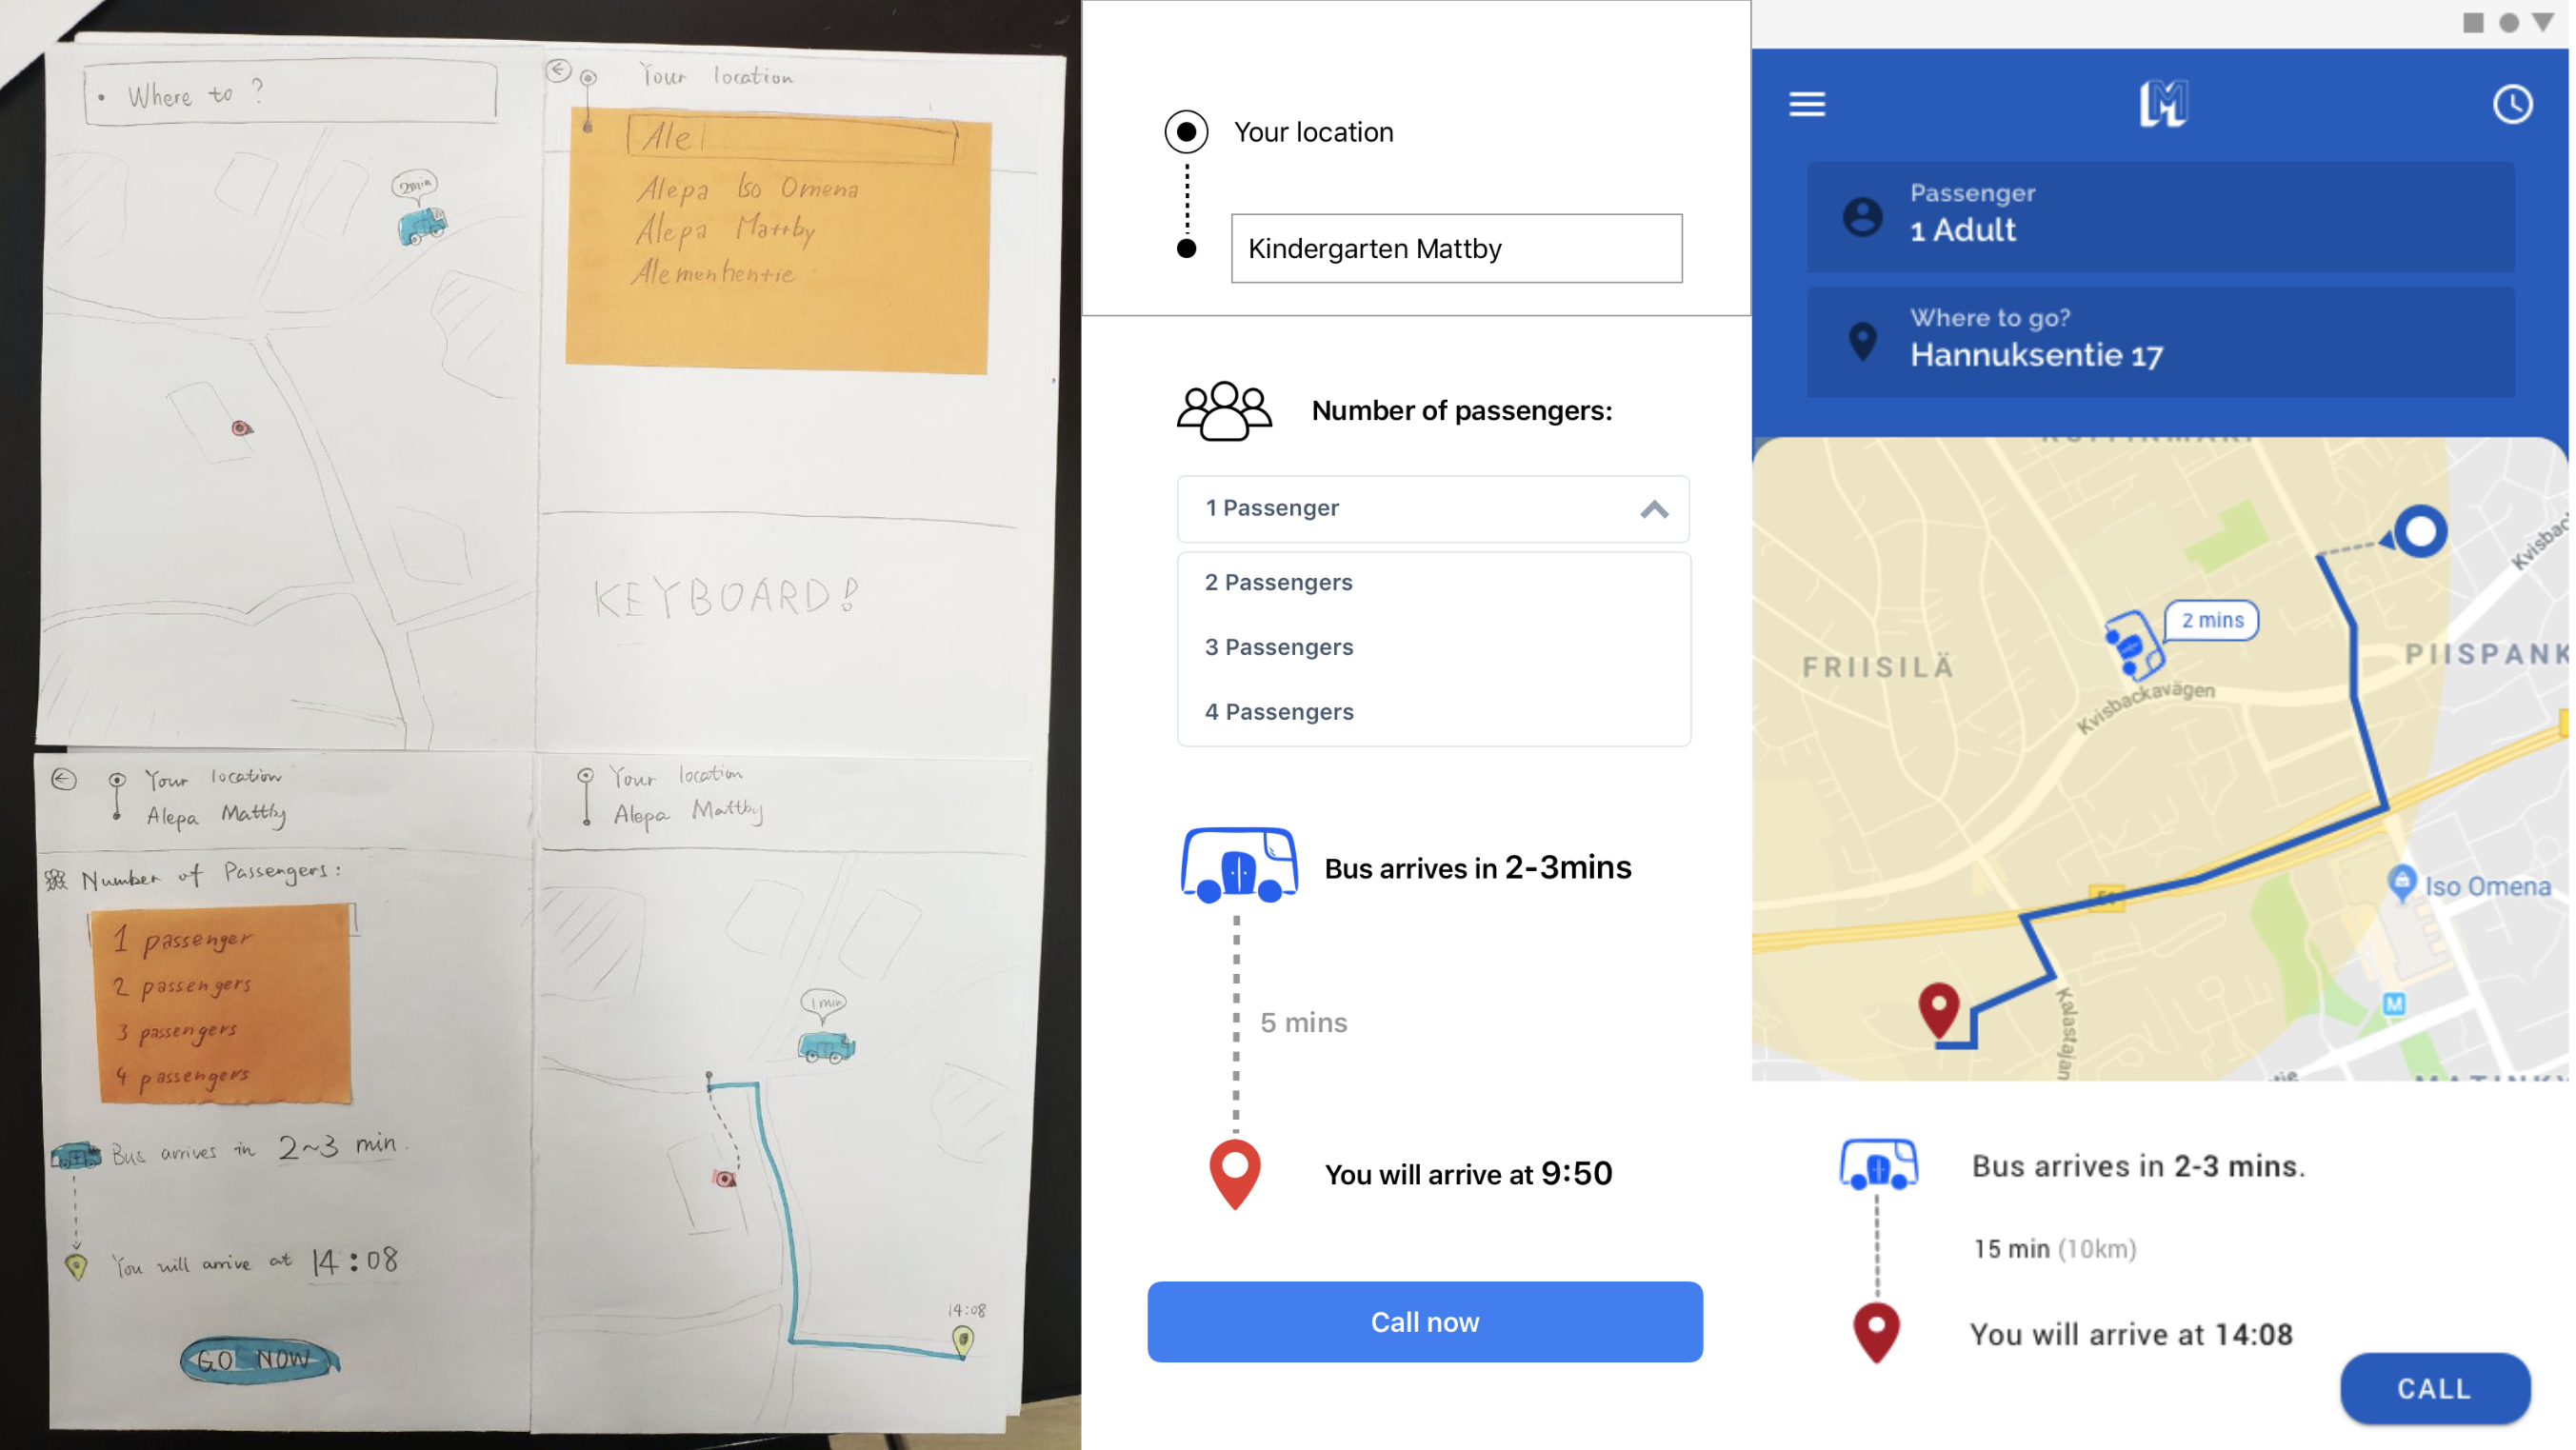 Where to ?
2min
Your location
Ale
Alepa Iso Omena
Alepa Mattby
Alemenhentie
KEYBOARD!
Your location
Alepa Mattby
Number of Passengers:
1 passenger
2 passengers
3 passengers
4 passengers
Bus arrives in 2~3 min.
You will arrive at 14:08
GO NOW
Your location
Alepa Mattby
1min
14:08
Your location
Kindergarten Mattby
Number of passengers:
1 Passenger
2 Passengers
3 Passengers
4 Passengers
Bus arrives in 2-3mins
5 mins
You will arrive at 9:50
Call now
M
Passenger
1 Adult
Where to go?
Hannuksentie 17
Kvisbac
2 mins
FRIISILÄ
PIISPANK
Kvisbackavägen
Iso Omena
M
Kalastajan
Bus arrives in 2-3 mins.
15 min (10km)
You will arrive at 14:08
CALL